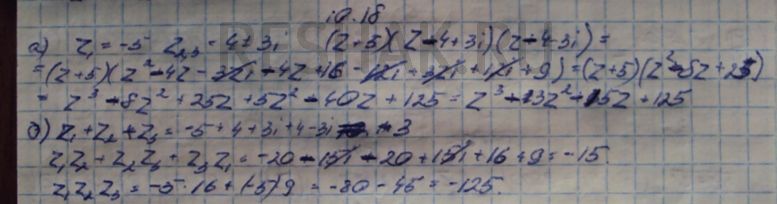 10.18
а) z₁ = -5 z₂,₃ = 4 ± 3i (z+5)(z-4+3i)(z-4-3i) =
= (z+5)(z² - 4z - 3zi - 4z + 16 + 12i + 3zi - 12i + 9) = (z+5)(z² - 8z + 25)
= z³ - 8z² + 25z + 5z² - 40z + 125 = z³ - 3z² - 15z + 125
б) z₁ + z₂ + z₃ = -5 + 4 + 3i + 4 - 3i = 3
z₁z₂ + z₂z₃ + z₃z₁ = -20 - 15i - 20 + 15i + 16 + 9 = -15.
z₁z₂z₃ = -5·16 + (-5)9 = -80 - 45 = -125.
RESHAK.RU